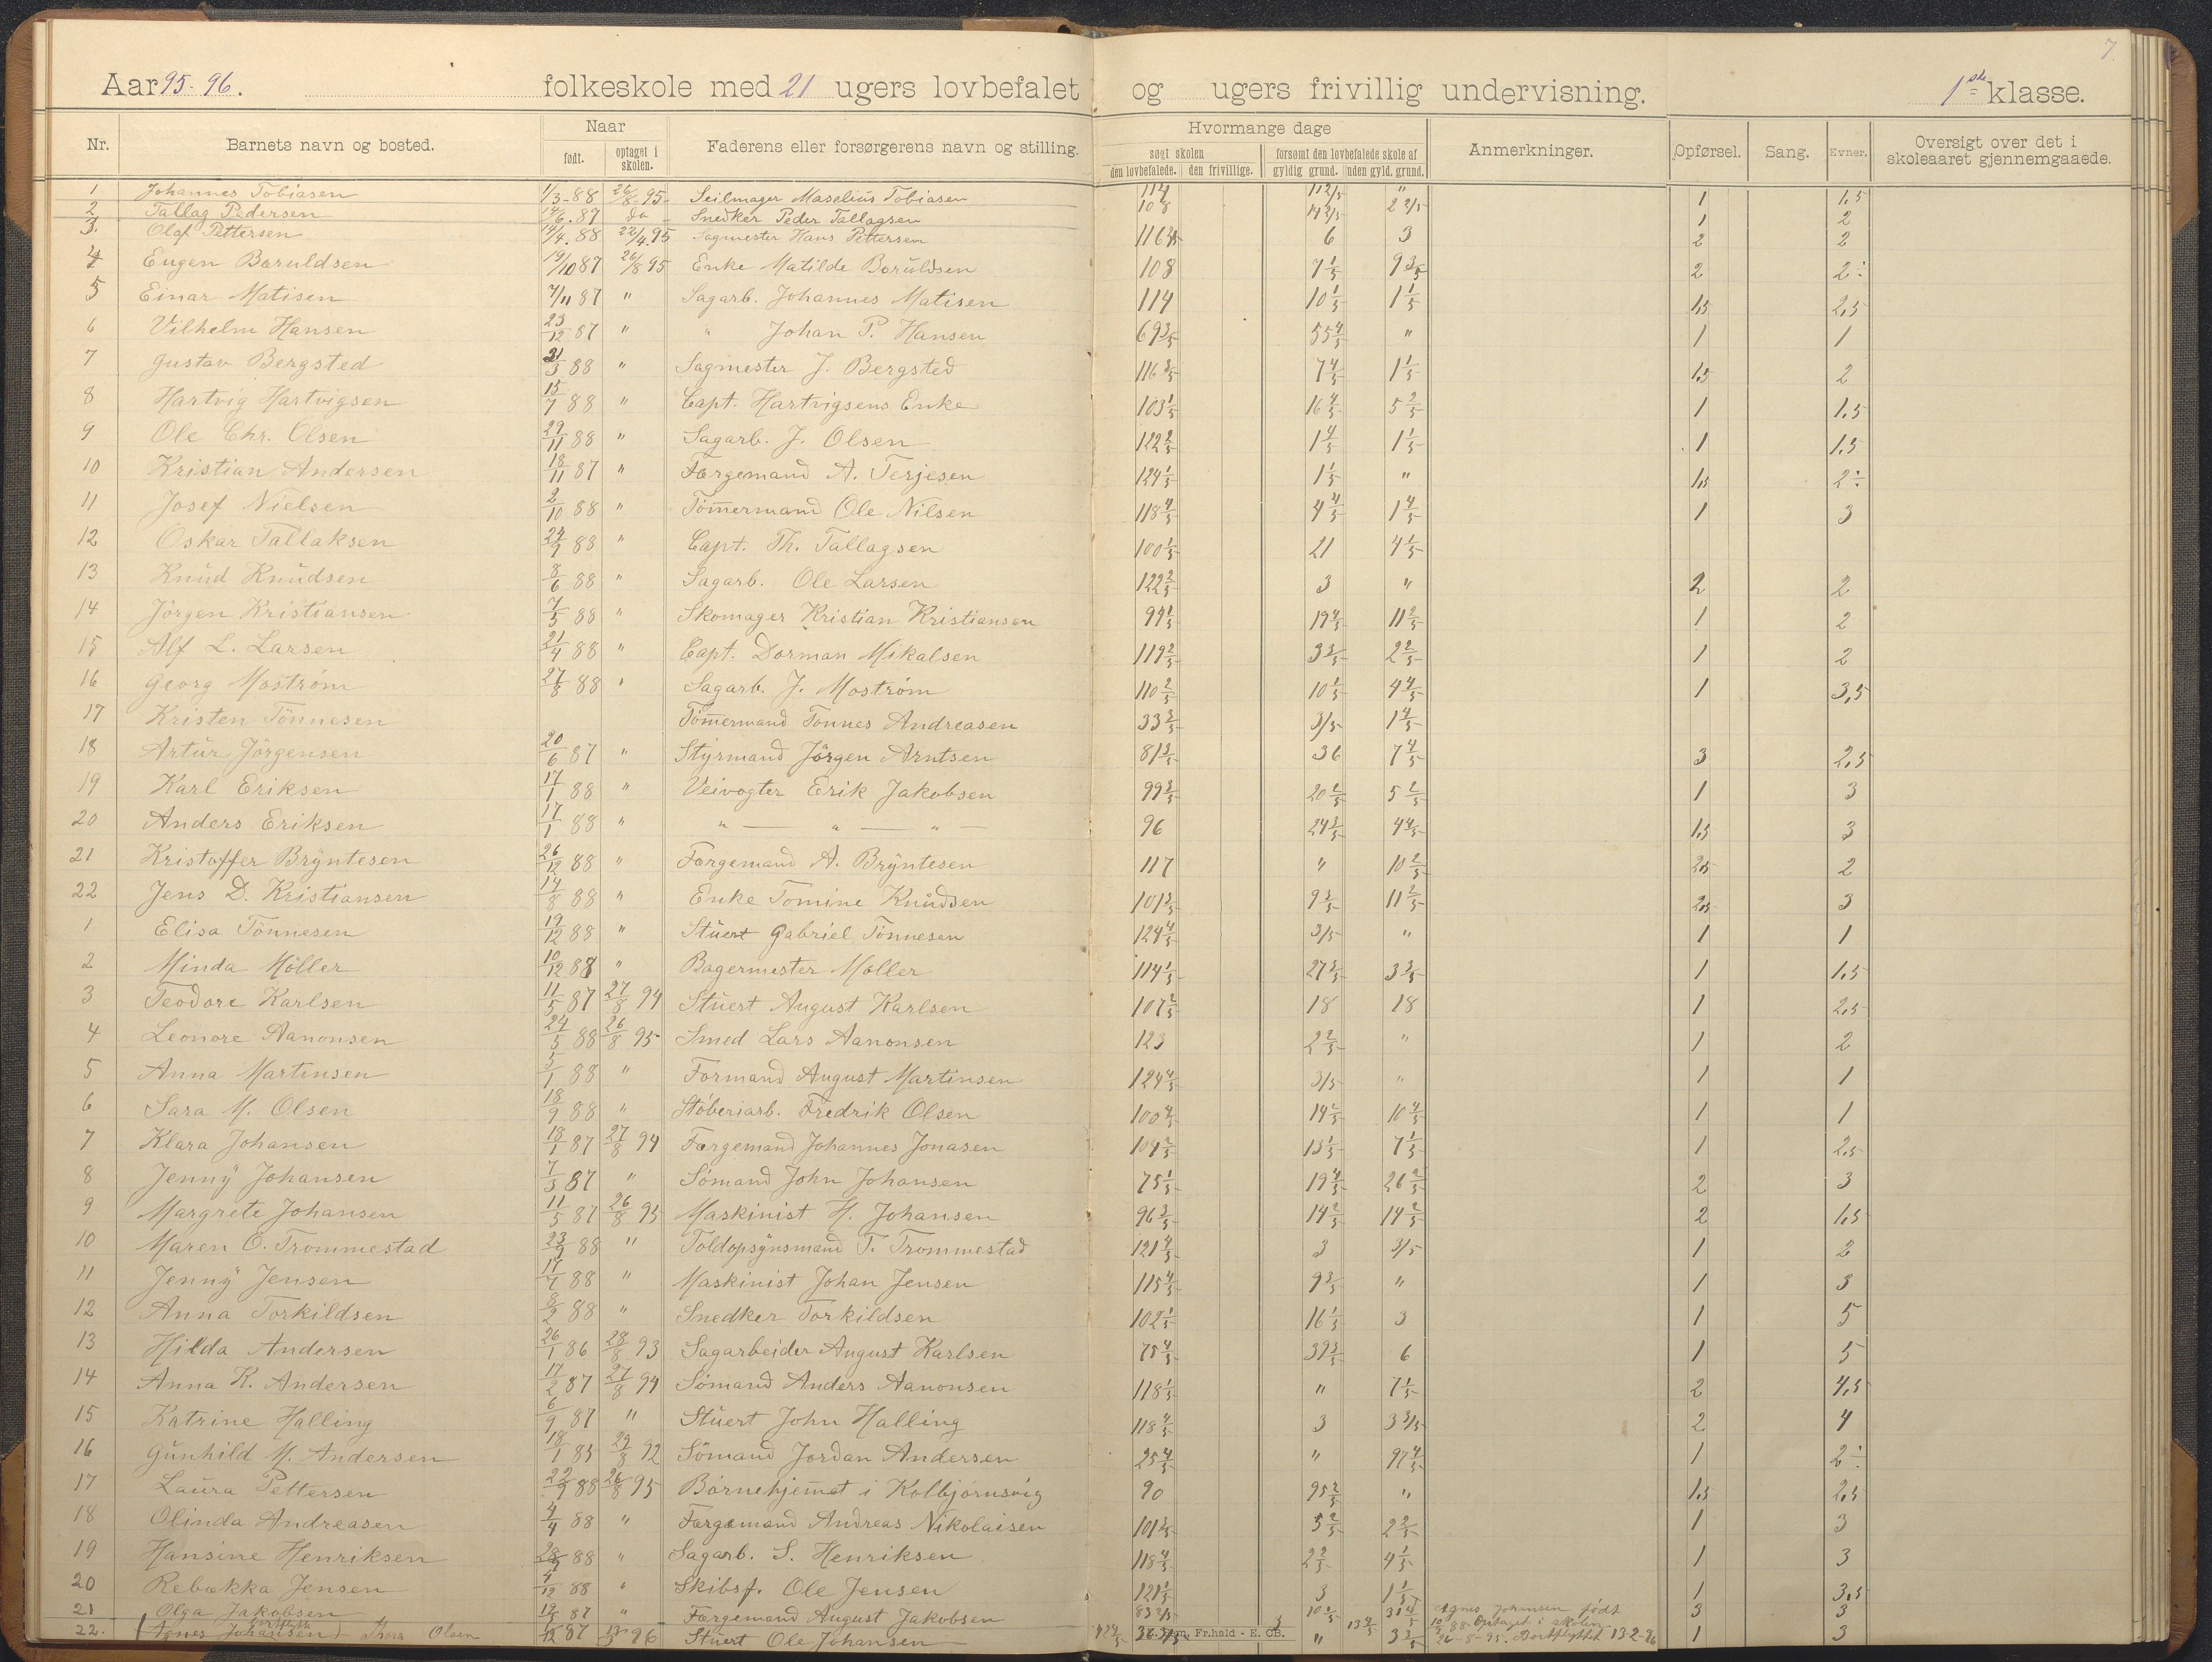 7.
Aar 95-96. folkeskole med 21 ugers lovbefalet og ugers frivillig undervisning. 1ste klasse.
Nr. Barnets navn og bosted. Naar Faderens eller forsørgerens navn og stilling. Hvormange dage Anmerkninger. Opførsel. Sang. Evner. Oversigt over det i skoleaaret gjennemgaaede.
født. optaget i skolen. søgt skolen forsømt den lovbefalede skole af
den lovbefalede. den frivillige. gyldig grund. uden gyld. grund.
1 Johannes Tobiasen 1/3-88 26/8-95 Seilmager Maselius Tobiasen 114 11 2/5 " 1 1,5
2 Tallag Pedersen 14/6.87 do Snedker Peder Tallagsen 108 14 2/5 2 2/5 1 2
3. Olaf Pettersen 14/4.88 22/4.95 Sagmester Hans Pettersen 116 6 3 2 2
4 Eugen Baruldsen 19/10 87 26/8 95 Enke Matilde Baruldsen 108 7 1/5 9 3/5 2 2÷
5 Einar Matisen 7/11 87 " Sagarb. Johannes Matisen 114 10 1/5 1 1/5 1,5 2,5
6 Vilhelm Hansen 23/12 87 " " Johan P. Hansen 69 3/5 55 4/5 " 1 1
7 Gustav Bergsted 88 " Sagmester J. Bergsted 116 3/5 7 4/5 1 1/5 1,5 2
8 Hartvig Hartvigsen 15/7 88 " Capt. Hartvigsens Enke 103 1/5 16 4/5 5 2/5 1 1,5
9 Ole Chr. Olsen 29/11 88 " Sagarb. J. Olsen 122 2/5 1 4/5 1 1/5 1 1,5
10 Kristian Andersen 18/11 87 " Færgemand A. Terjesen 124 1/5 1 1/5 " 1,5 2÷
11 Josef Nielsen 2/10 88 " Tömmermand Ole Nilsen 118 4/5 4 4/5 1 4/5 1 3
12 Oskar Tallaksen 88 " Capt. Th. Tallagsen 100 1/5 21 4 1/5
13 Knud Knudsen 8/6 88 " Sagarb. Ole Larsen 122 2/5 3 " 2 2
14 Jörgen Kristiansen 7/5 88 " Skomager Kristian Kristiansen 94 1/5 19 4/5 11 2/5 1 2
15 Alf L. Larsen 21/4 88 " Capt. Dorman Mikalsen 119 2/5 3 3/5 2 2/5 1 2
16 Georg Moström 27/8 88 " Sagarb. J. Moström 110 2/5 10 1/5 4 4/5 1 3,5
17 Kristen Tönnesen Tömmermand Tonnes Andreasen 33 3/5 3/5 1 4/5
18 Artur Jörgensen 20/6 87 " Styrmand Jörgen Arntsen 81 3/5 36 7 4/5 3 2,5
19 Karl Eriksen 17/1 88 " Veivogter Erik Jakobsen 99 3/5 20 5 1 3
20 Anders Eriksen 17/1 88 " " — " — " — 96 24 3/5 4 4/5 1,5 3
21 Kristoffer Bryntesen 26/12 88 " Færgemand A. Bryntesen 117 " 10 2/5 2,5 2
22 Jens D. Kristiansen 14/8 88 " Enke Tomine Knudsen 101 3/5 9 3/5 11 2/5 2,5 3
1 Elisa Tönnesen 19/12 88 " Stuert Gabriel Tönnesen 124 4/5 3/5 " 1 1
2 Minda Möller 10/12 88 " Bagermester Møller 114 1/5 27 3/5 3 3/5 1 1,5
3 Teodore Karlsen 11/5 87 27/8 94 Stuert August Karlsen 107 2/5 18 18 1 2,5
4 Leonore Aanonsen 24/5 88 26/8 95 Smed Lars Aanonsen 123 2 2/5 " 1 2
5 Anna Martinsen 5/1 88 " Formand August Martinsen 124 4/5 3/5 " 1 1
6 Sara M. Olsen 18/9 88 " Støberiarb. Fredrik Olsen 100 4/5 14 2/5 10 4/5 1 1
7 Klara Johansen 18/1 87 27/8 94 Færgemand Johannes Jonasen 104 2/5 13 1/5 7 1/5 1 2,5
8 Jenny Johansen 7/3 87 " Sømand John Johansen 75 1/5 19 4/5 26 2/5 2 3
9 Margrete Johansen 11/5 87 26/8 95 Maskinist H. Johansen 96 3/5 14 2/5 14 2/5 2 1,5
10 Maren O. Trommestad 23/9 88 " Toldopsynsmand T. Trommestad 121 4/5 3 3/5 1 2
11 Jenny Jensen 88 " Maskinist Johan Jensen 115 4/5 9 3/5 " 1 3
12 Anna Torkildsen 8/2 88 " Snedker Torkildsen 102 1/5 16 1/5 3 1 5
13 Hilda Andersen 26/1 86 28/8 93 Sagarbeider August Karlsen 75 4/5 39 3/5 6 1 5
14 Anna K. Andersen 17/2 87 27/8 94 Sömand Anders Aanonsen 118 1/5 " 7 1/5 2 4,5
15 Katrine Halling 6/9 87 " Stuert John Halling 118 4/5 3 3 3/5 2 4
16 Gunhild M. Andersen 18/1 85 29/8 92 Sömand Jordan Andersen 25 4/5 " 97 4/5 1 2÷
17 Laura Pettersen 22/9 88 26/8 95 Børnehjemmet i Kolbjørnsvig 90 95 2/5 " 1,5 2,5
18 Olinda Andreasen 4/4 88 " Færgemand Andreas Nikolaisen 101 3/5 5 2/5 2 2/5 1 3
19 Hansine Henriksen 88 " Sagarb. S. Henriksen 118 4/5 2 2/5 4 1/5 1 3
20 Rebækka Jensen 88 " Skibsf. Ole Jensen 121 1/5 3 1 1/5 1 3,5
21 Olga Jakobsen 87 " Færgemand August Jakobsen 83 2/5 10 31 4/5 3 3
22. Agnes Johansen Thora Olsen 87 96 Stuert Ole Johansen " 3 3/5 1 3
Agnes Johansen født
88. Optaget i skolen
26-8-95. Bortflyttet 13-2-96
Fr.hald - E. CB.